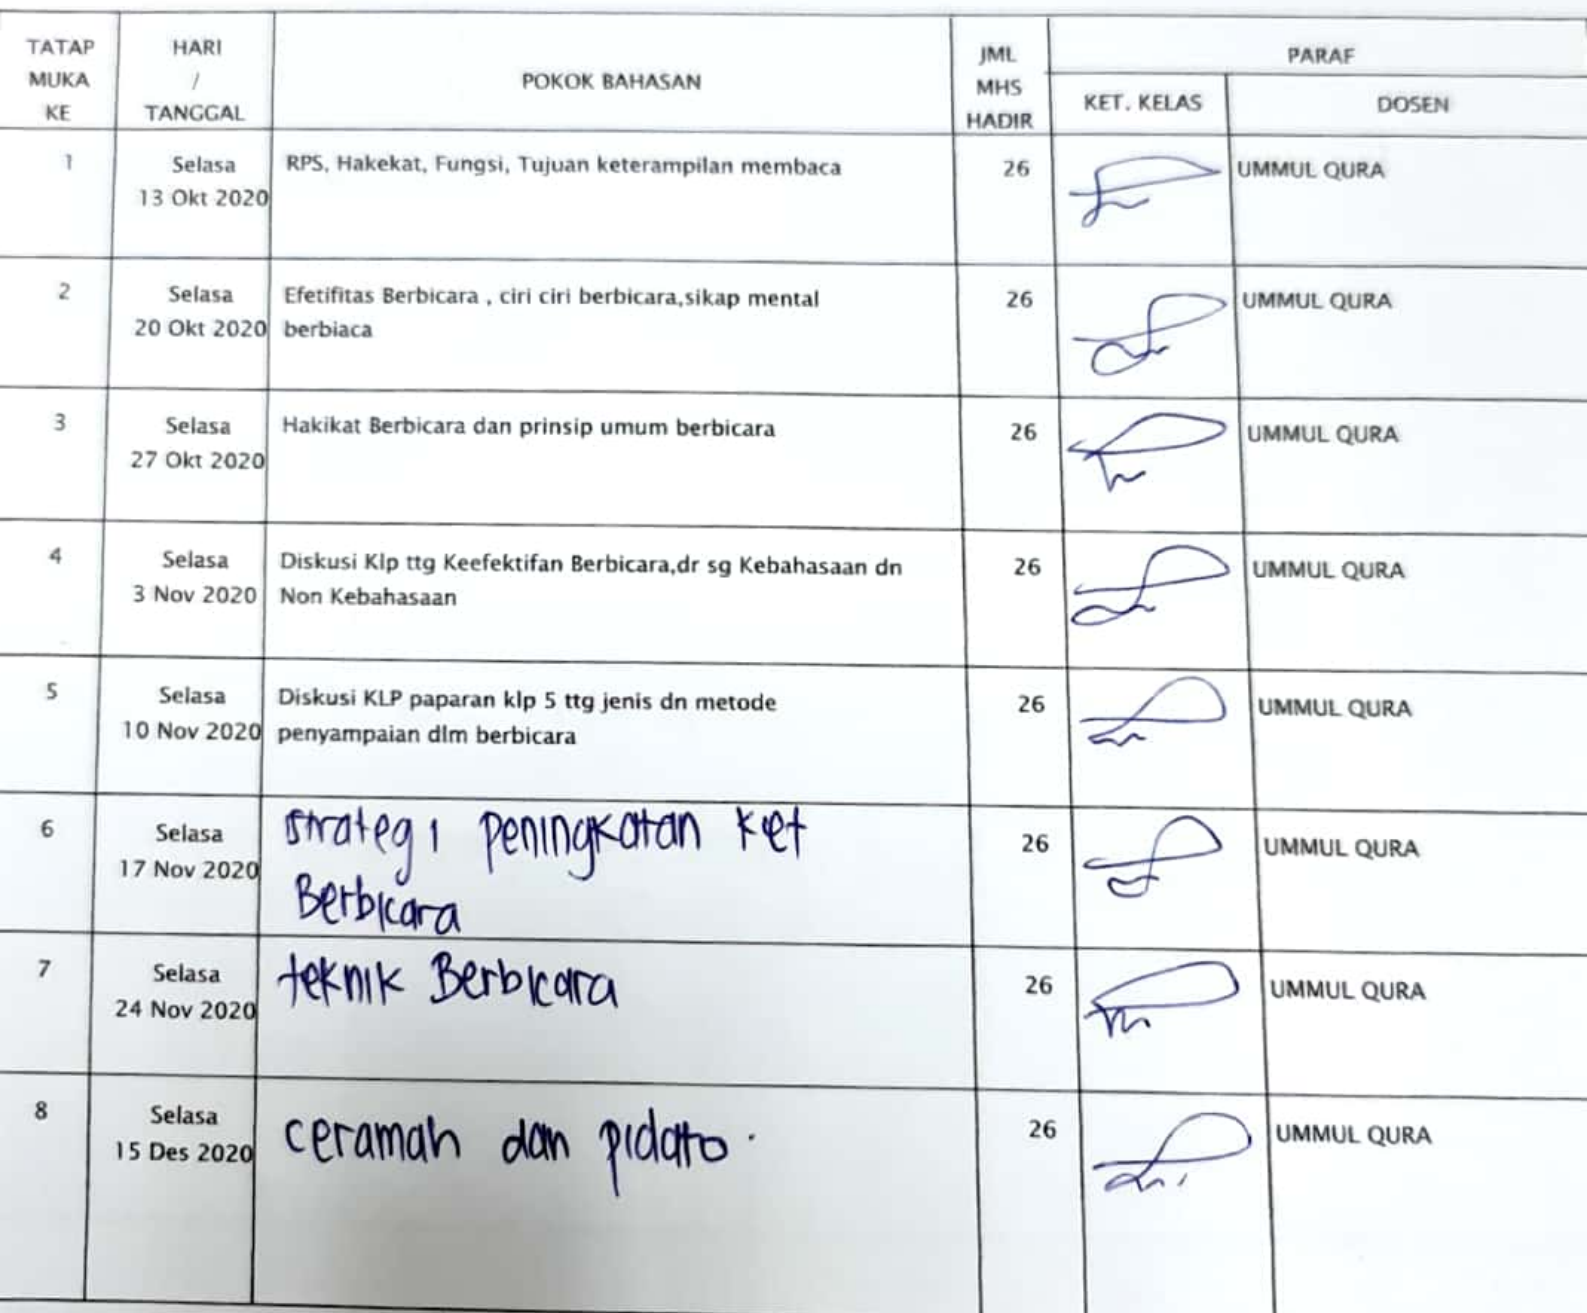 TATAP MUKA KE
HARI / TANGGAL
POKOK BAHASAN
JML MHS HADIR
PARAF
KET. KELAS
DOSEN
1
Selasa
13 Okt 2020
RPS, Hakekat, Fungsi, Tujuan keterampilan membaca
26
UMMUL QURA
2
Selasa
20 Okt 2020
Efetifitas Berbicara , ciri ciri berbicara,sikap mental
berbiaca
26
UMMUL QURA
3
Selasa
27 Okt 2020
Hakikat Berbicara dan prinsip umum berbicara
26
UMMUL QURA
4
Selasa
3 Nov 2020
Diskusi Klp ttg Keefektifan Berbicara,dr sg Kebahasaan dn
Non Kebahasaan
26
UMMUL QURA
5
Selasa
10 Nov 2020
Diskusi KLP paparan klp 5 ttg jenis dn metode
penyampaian dlm berbicara
26
UMMUL QURA
6
Selasa
17 Nov 2020
strategi peningkatan ket
Berbicara
26
UMMUL QURA
7
Selasa
24 Nov 2020
teknik Berbicara
26
UMMUL QURA
8
Selasa
15 Des 2020
ceramah dan pidato.
26
UMMUL QURA